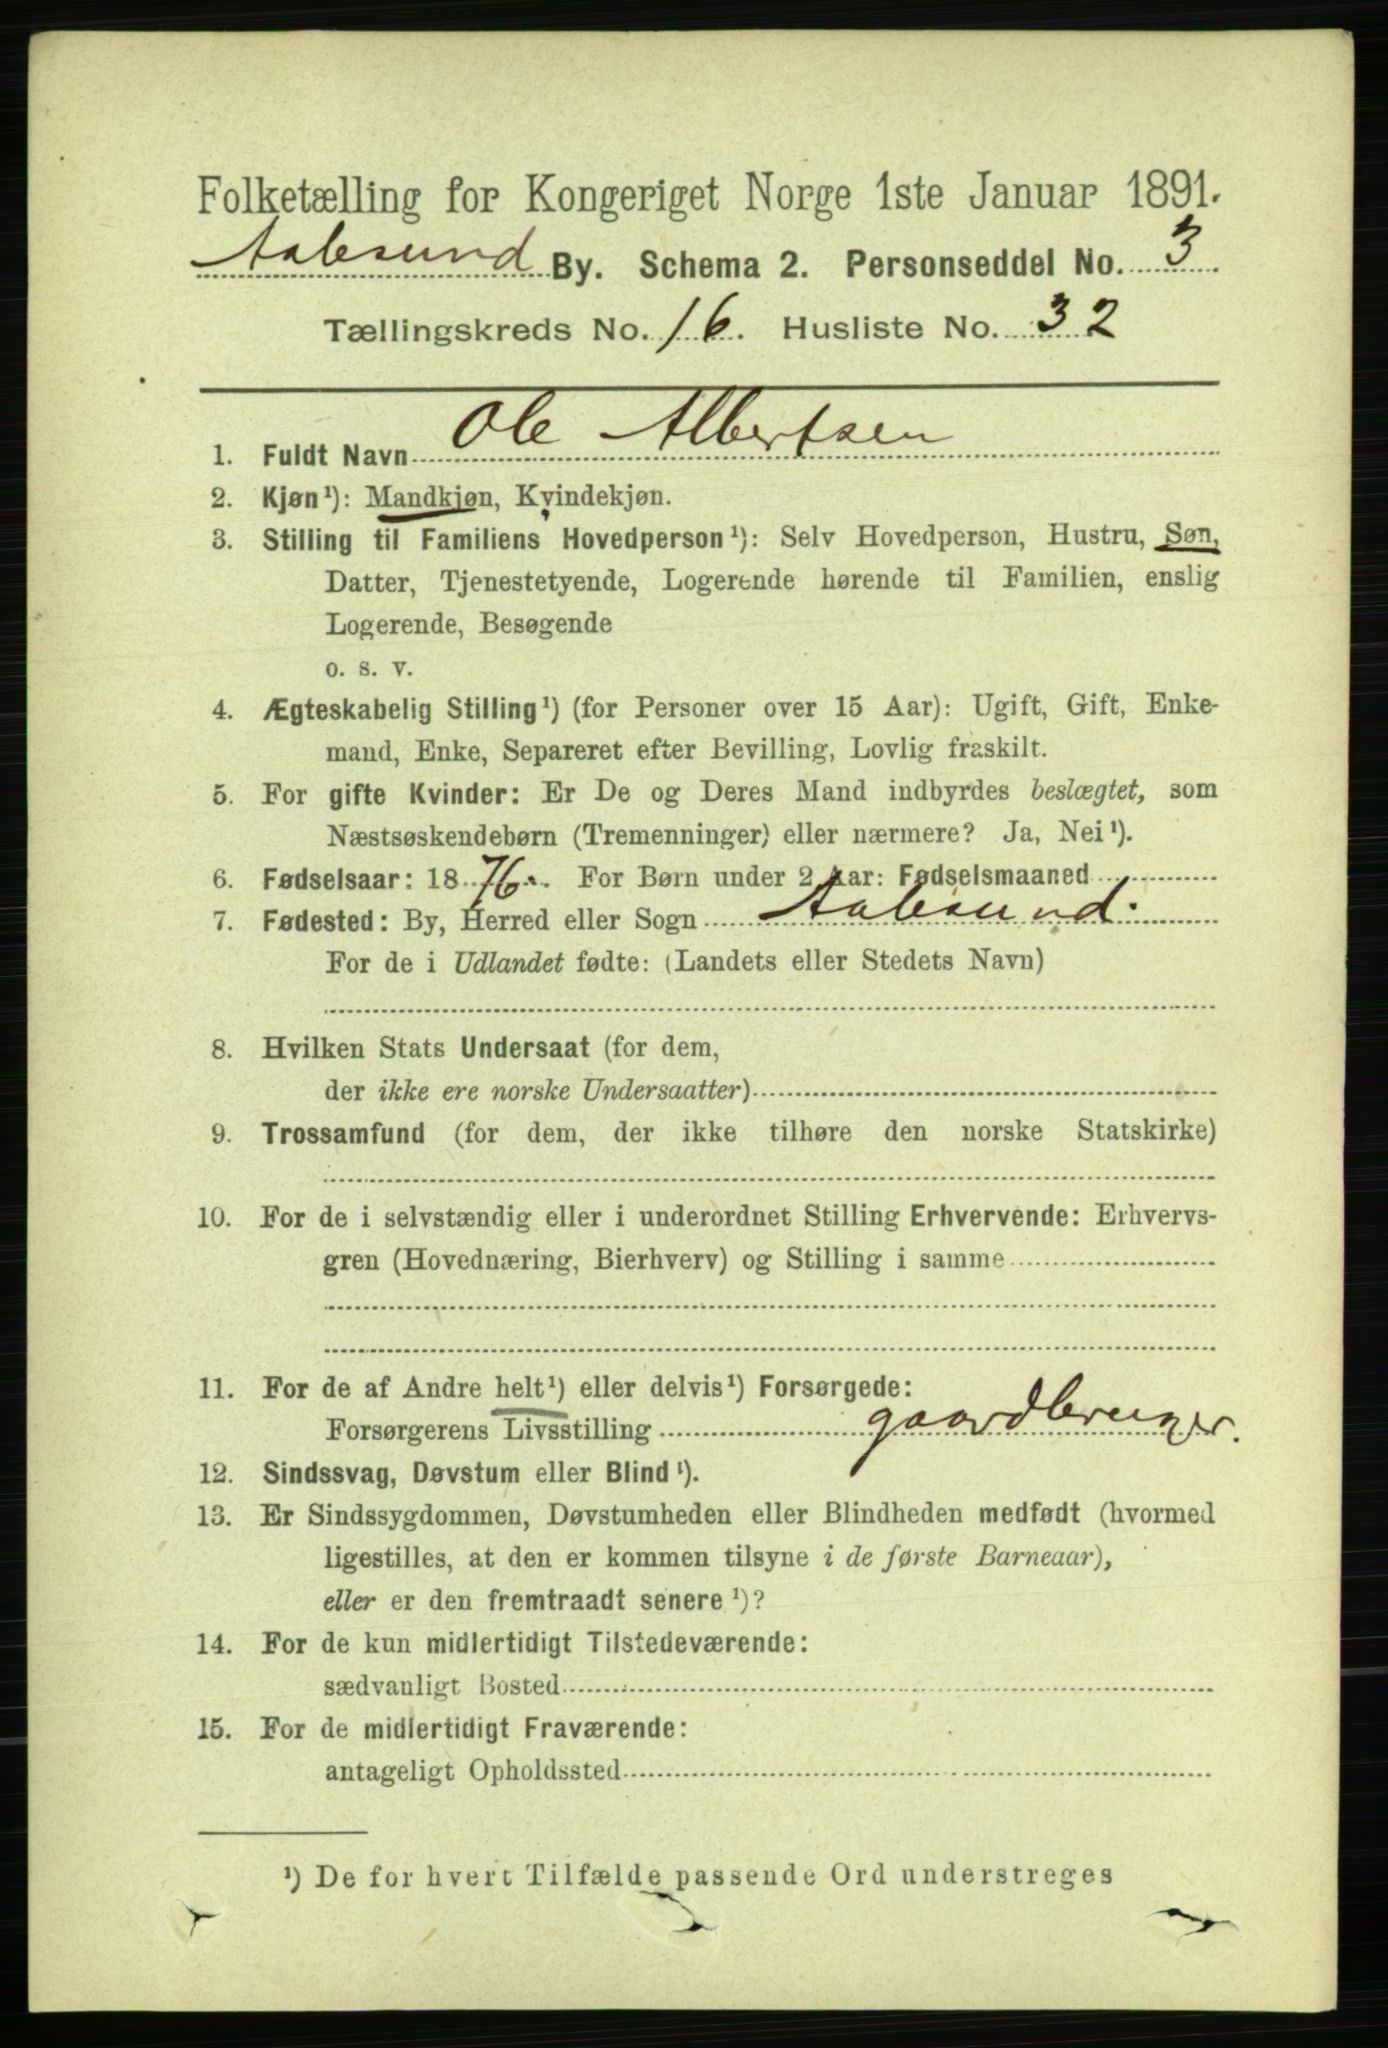 Folketælling for Kongeriget Norge 1ste Januar 1891.
Aalesund By. Schema 2. Personseddel No. 3
Tællingskreds No. 16. Husliste No. 32
1. Fuldt Navn Ole Albertsen
2. Kjøn¹): Mandkjøn, Kvindekjøn.
3. Stilling til Familiens Hovedperson¹): Selv Hovedperson, Hustru, Søn,
Datter, Tjenestetyende, Logerende hørende til Familien, enslig
Logerende, Besøgende
o. s. v.
4. Ægteskabelig Stilling¹) (for Personer over 15 Aar): Ugift, Gift, Enke-
mand, Enke, Separeret efter Bevilling, Lovlig fraskilt.
5. For gifte Kvinder: Er De og Deres Mand indbyrdes beslægtet, som
Næstsøskendebørn (Tremenninger) eller nærmere? Ja, Nei¹).
6. Fødselsaar: 1876. For Børn under 2 Aar: Fødselsmaaned
7. Fødested: By, Herred eller Sogn Aalesund.
For de i Udlandet fødte: (Landets eller Stedets Navn)
8. Hvilken Stats Undersaat (for dem,
der ikke ere norske Undersaatter)
9. Trossamfund (for dem, der ikke tilhøre den norske Statskirke)
10. For de i selvstændig eller i underordnet Stilling Erhvervende: Erhvervs-
gren (Hovednæring, Bierhverv) og Stilling i samme
11. For de af Andre helt¹) eller delvis¹) Forsørgede:
Forsørgerens Livsstilling gaardbruger.
12. Sindssvag, Døvstum eller Blind¹).
13. Er Sindssygdommen, Døvstumheden eller Blindheden medfødt (hvormed
ligestilles, at den er kommen tilsyne i de første Barneaar),
eller er den fremtraadt senere¹)?
14. For de kun midlertidigt Tilstedeværende:
sædvanligt Bosted
15. For de midlertidigt Fraværende:
antageligt Opholdssted
¹) De for hvert Tilfælde passende Ord understreges